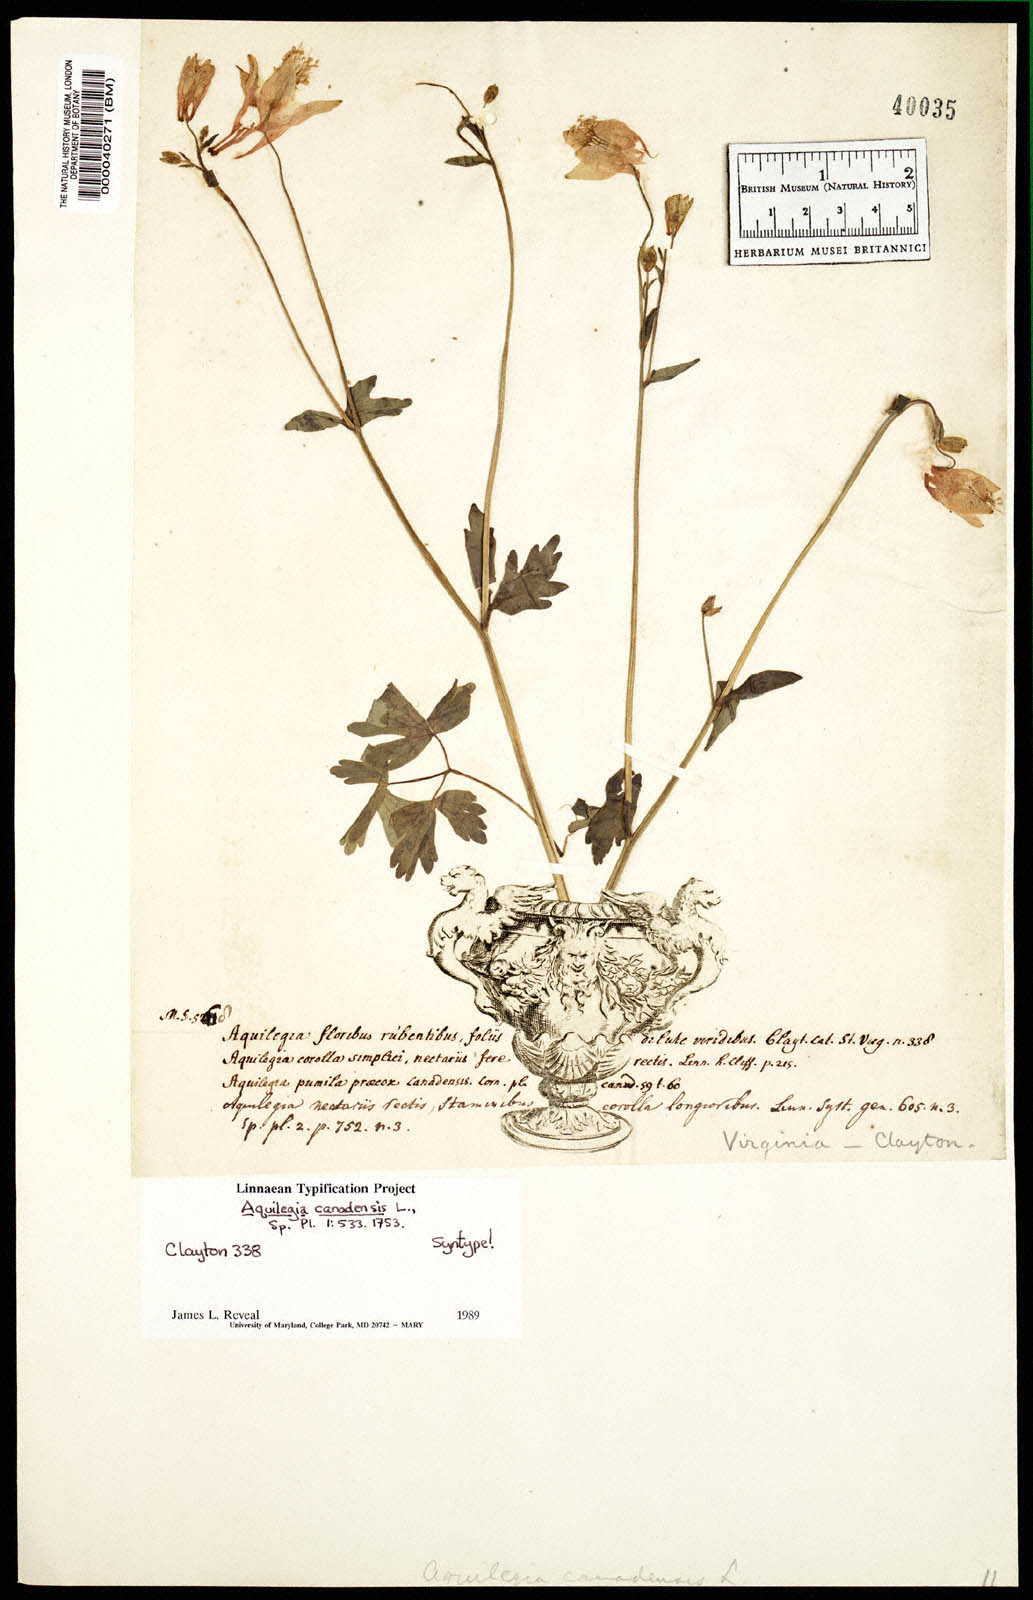 THE NATURAL HISTORY MUSEUM, LONDON
DEPARTMENT OF BOTANY
000040271 (BM)
40035
1 2
BRITISH MUSEUM (NATURAL HISTORY)
1 2 3 4 5
HERBARIUM MUSEI BRITANNICI
Aquilegia floribus rubentibus, foliis dilute viridibus. Clayt. Cat. St. Virg. n. 338
Aquilegia corolla simplici, nectariis fere rectis. Linn. h. Cliff. p. 215.
Aquilegia pumila præcox Canadensis. Corn. pl. canad. 59 t. 60
Aquilegia nectariis rectis, Staminibus corolla longioribus. Linn. Syst. gen. 605. n. 3.
Sp. pl. 2. p. 752. n. 3.
Virginia — Clayton.
Linnaean Typification Project
Aquilegia canadensis L.,
Sp. Pl. 1: 533. 1753.
Clayton 338 Syntype!
James L. Reveal 1989
University of Maryland, College Park, MD 20742 – MARY
Aquilegia canadensis L
11